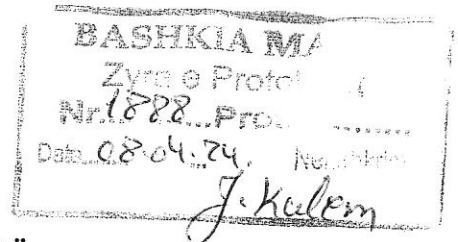 BASHKIA MA
Zyra e Proto
Nr. 1888 Pro
Data 08.04.24.
J. Kalem